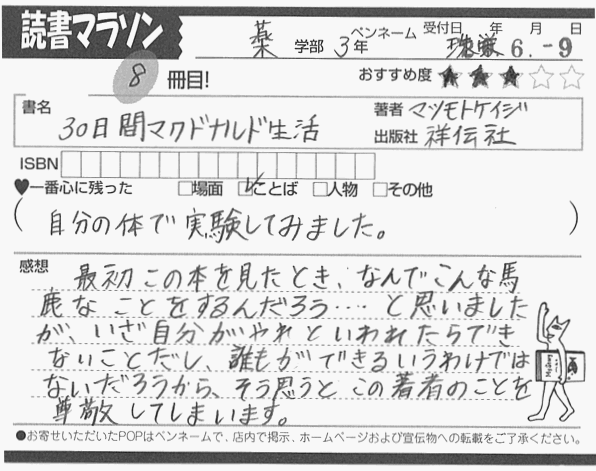 読書マラソン
薬 学部 3年 ペンネーム 受付日 年 月 日
6.-9
8 冊目!
おすすめ度 ★★★☆☆
書名
30日間マクドナルド生活
著者 マツモトケイジ
出版社 祥伝社
ISBN
♥一番心に残った □場面 ☑ことば □人物 □その他
(自分の体で実験してみました。)
感想
最初この本を見たとき、なんでこんな馬
鹿なことをするんだろう…と思いました
が、いざ自分がやれといわれたらでき
ないことだし、誰もができるいうわけでは
ないだろうから、そう思うとこの著者のことを
尊敬してしまいます。
●お寄せいただいたPOPはペンネームで、店内で掲示、ホームページおよび宣伝物への転載をご了承ください。